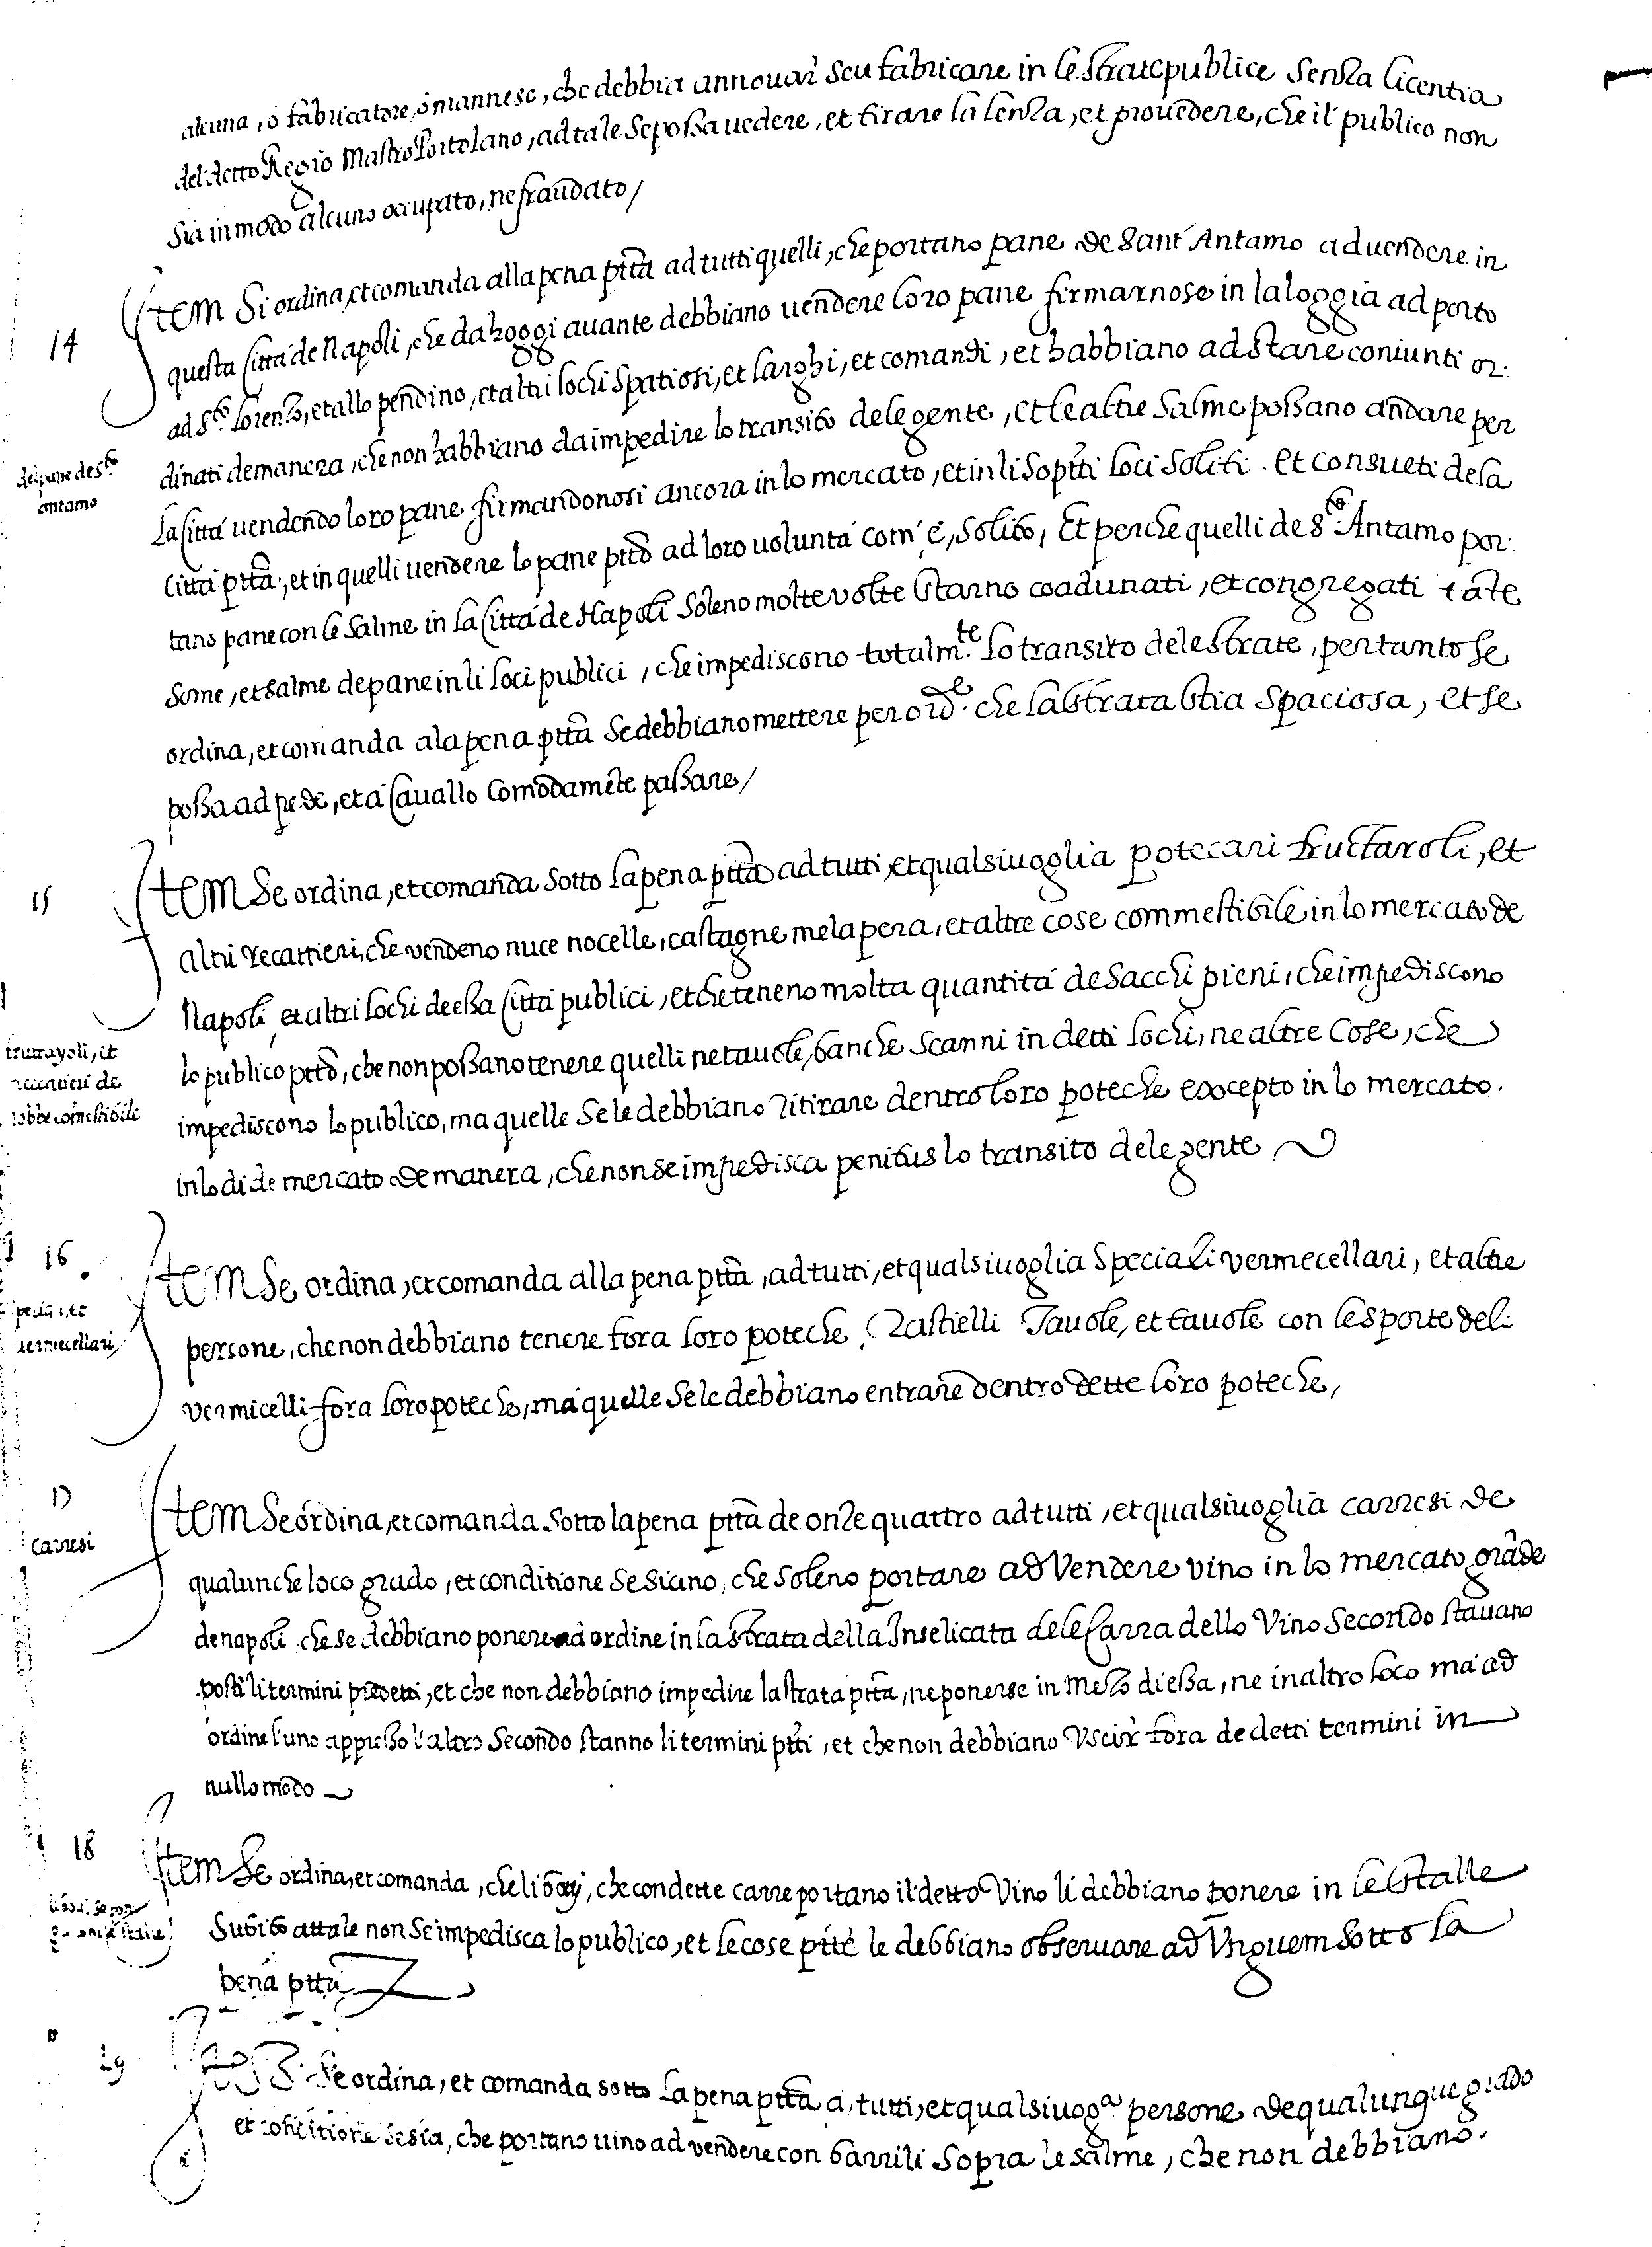 alcuna, ò fabricatore, ò mannese, che debbia annouar̃ seu fabricare in le strate publice senza licentia
del detto Regio Mastro Portolano, ad tale se possa uedere, et tirare la lenza, et prouedere, che il publico non
sia in modo alcuno occupato, ne fraudato/
14
Item Si ordina, et comanda alla pena ptta ad tutti quelli, che portano pane de Sant' Antamo ad uendere in
questa Città de Napoli, che da hoggi auante debbiano uendere loro pane firmarnose in la loggia ad porto
ad S.to Lorenzo, et allo pendino, et altri lochi spatiosi, et larghi, et comandi, et habbiano ad stare coniunti or:
del pane de s.to
antamo
dinati de manera, che non habbiano da impedire lo transito dele gente, et le altre salme possano andare per
la Città uendendo loro pane firmandonosi ancora in lo mercato, et in li sop.ti loci soliti. et consueti de la
Città ptta; et in quelli uendere lo pane ptto ad loro uoluntà com' è, solito, Et perche quelli de S.to Antamo por:
tano pane con le salme in la Città de Napoli soleno molte volte starno coadunati, et congregati tate
some, et salme de pane in li loci publici, che impediscono totalm.te lo transito dele strate, per tanto se
ordina, et comanda a la pena ptta se debbiano mettere per ord.e che la strata stia spaciosa, et se
possa ad pede, et à Cauallo comodamẽte passare/
15
Item Se ordina, et comanda sotto la pena ptta ad tutti, et qualsiuoglia potecari fructaroli, et
altri recattieri, che vendeno nuce nocelle, castagne mela pera, et altre cose commestibile in lo mercato de
Napoli, et altri lochi de essa Città publici, et che teneno molta quantità de sacchi pieni, che impediscono
fruttayoli, et
recattieri de
robbe comestibili
lo publico ptto, che non possano tenere quelli ne tauole, banche scanni in detti lochi, ne altre cose, che
impediscono lo publico, ma quelle se le debbiano ritirare dentro loro poteche excepto in lo mercato.
in lo di de mercato de manera, che non se impedisca penitus lo transito dele gente
16
Item Se ordina, et comanda alla pena ptta, ad tutti, et qualsiuoglia speciali vermecellari, et altre
vermecellari/
persone, che non debbiano tenere fora loro poteche, Rastielli Tauole, et tauole con le sporte deli
vermicelli fora loro poteche, mà quelle se le debbiano entrare dentro dette loro poteche,
17
Carresi
Item Se ordina, et comanda sotto la pena ptta de onze quattro ad tutti, et qualsiuoglia carresi de
qualunche loco grado, et conditione se siano, che soleno portare ad Vendere vino in lo mercato grãde
de napoli che se debbiano ponere ad ordine in la strata della Inselicata dele Carra dello Vino secondo stauano
posti li termini predetti, et che non debbiano impedire la strata ptta, ne ponerse in mezo di essa, ne in altro loco mà ad
ordine l'uno appresso l'altro secondo stanno li termini ptti, et che non debbiano Vscir̃ fora de detti termini in
nullo modo
18
Item Se ordina, et comanda, che li boui, che con dette carre portano il detto Vino li debbiano ponere in le stalle
subito attale non se impedisca lo publico, et le cose ptte le debbiano obseruare ad Vnguem sotto la
pena ptta
19
Item Se ordina, et comanda sotto la pena ptta a, tutti, et qualsiuog.a persone de qualunque grado
et conditione se sia, che portano uino ad vendere con barrili sopra le salme, che non debbiano.